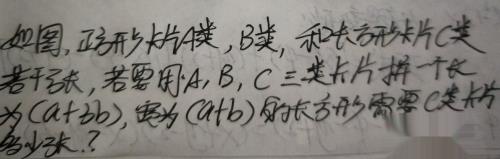 如图,正方形卡片A类,B类,和长方形卡片C类
若干张,若要用A,B,C三类卡片拼一个长
为(a+3b),宽为(a+b)的长方形需要C类卡片
多少张?